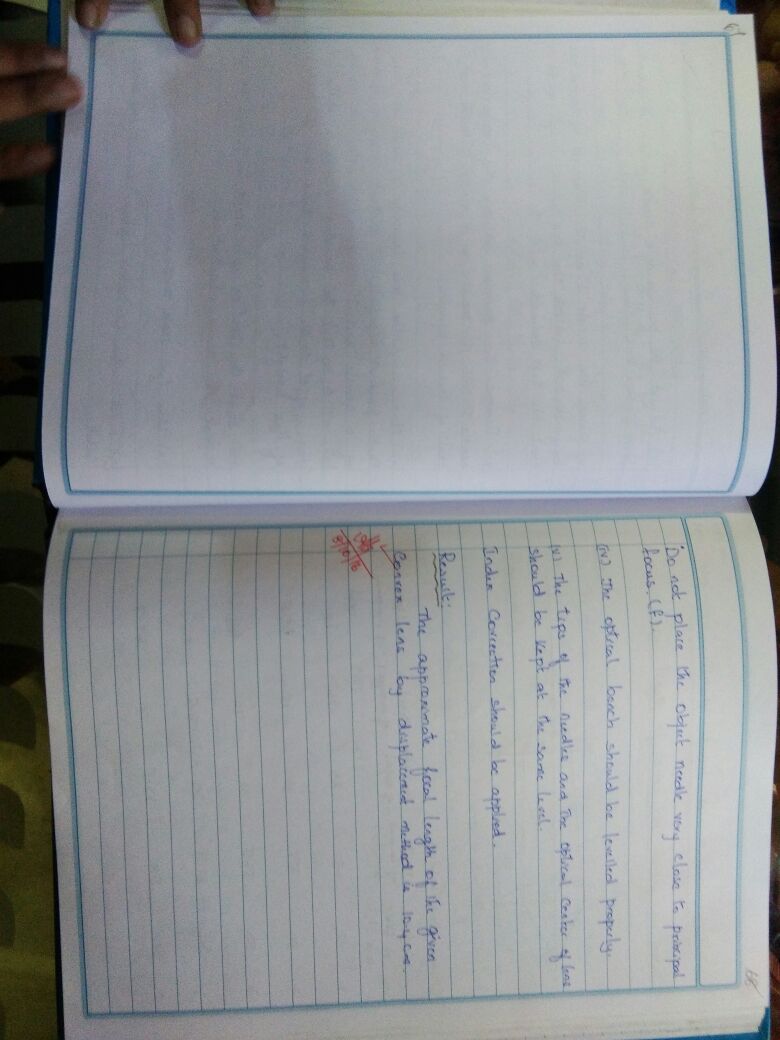 67
68
Do not place the object needle very close to principal
focus. (f).
(iv) The optical bench should be levelled properly
(v) The tips of the needles and the optical center of lens
should be kept at the same level.
Index Correction should be applied.
Result:
The approximate focal length of the given
Convex lens by displacement method is 10.4 cms.